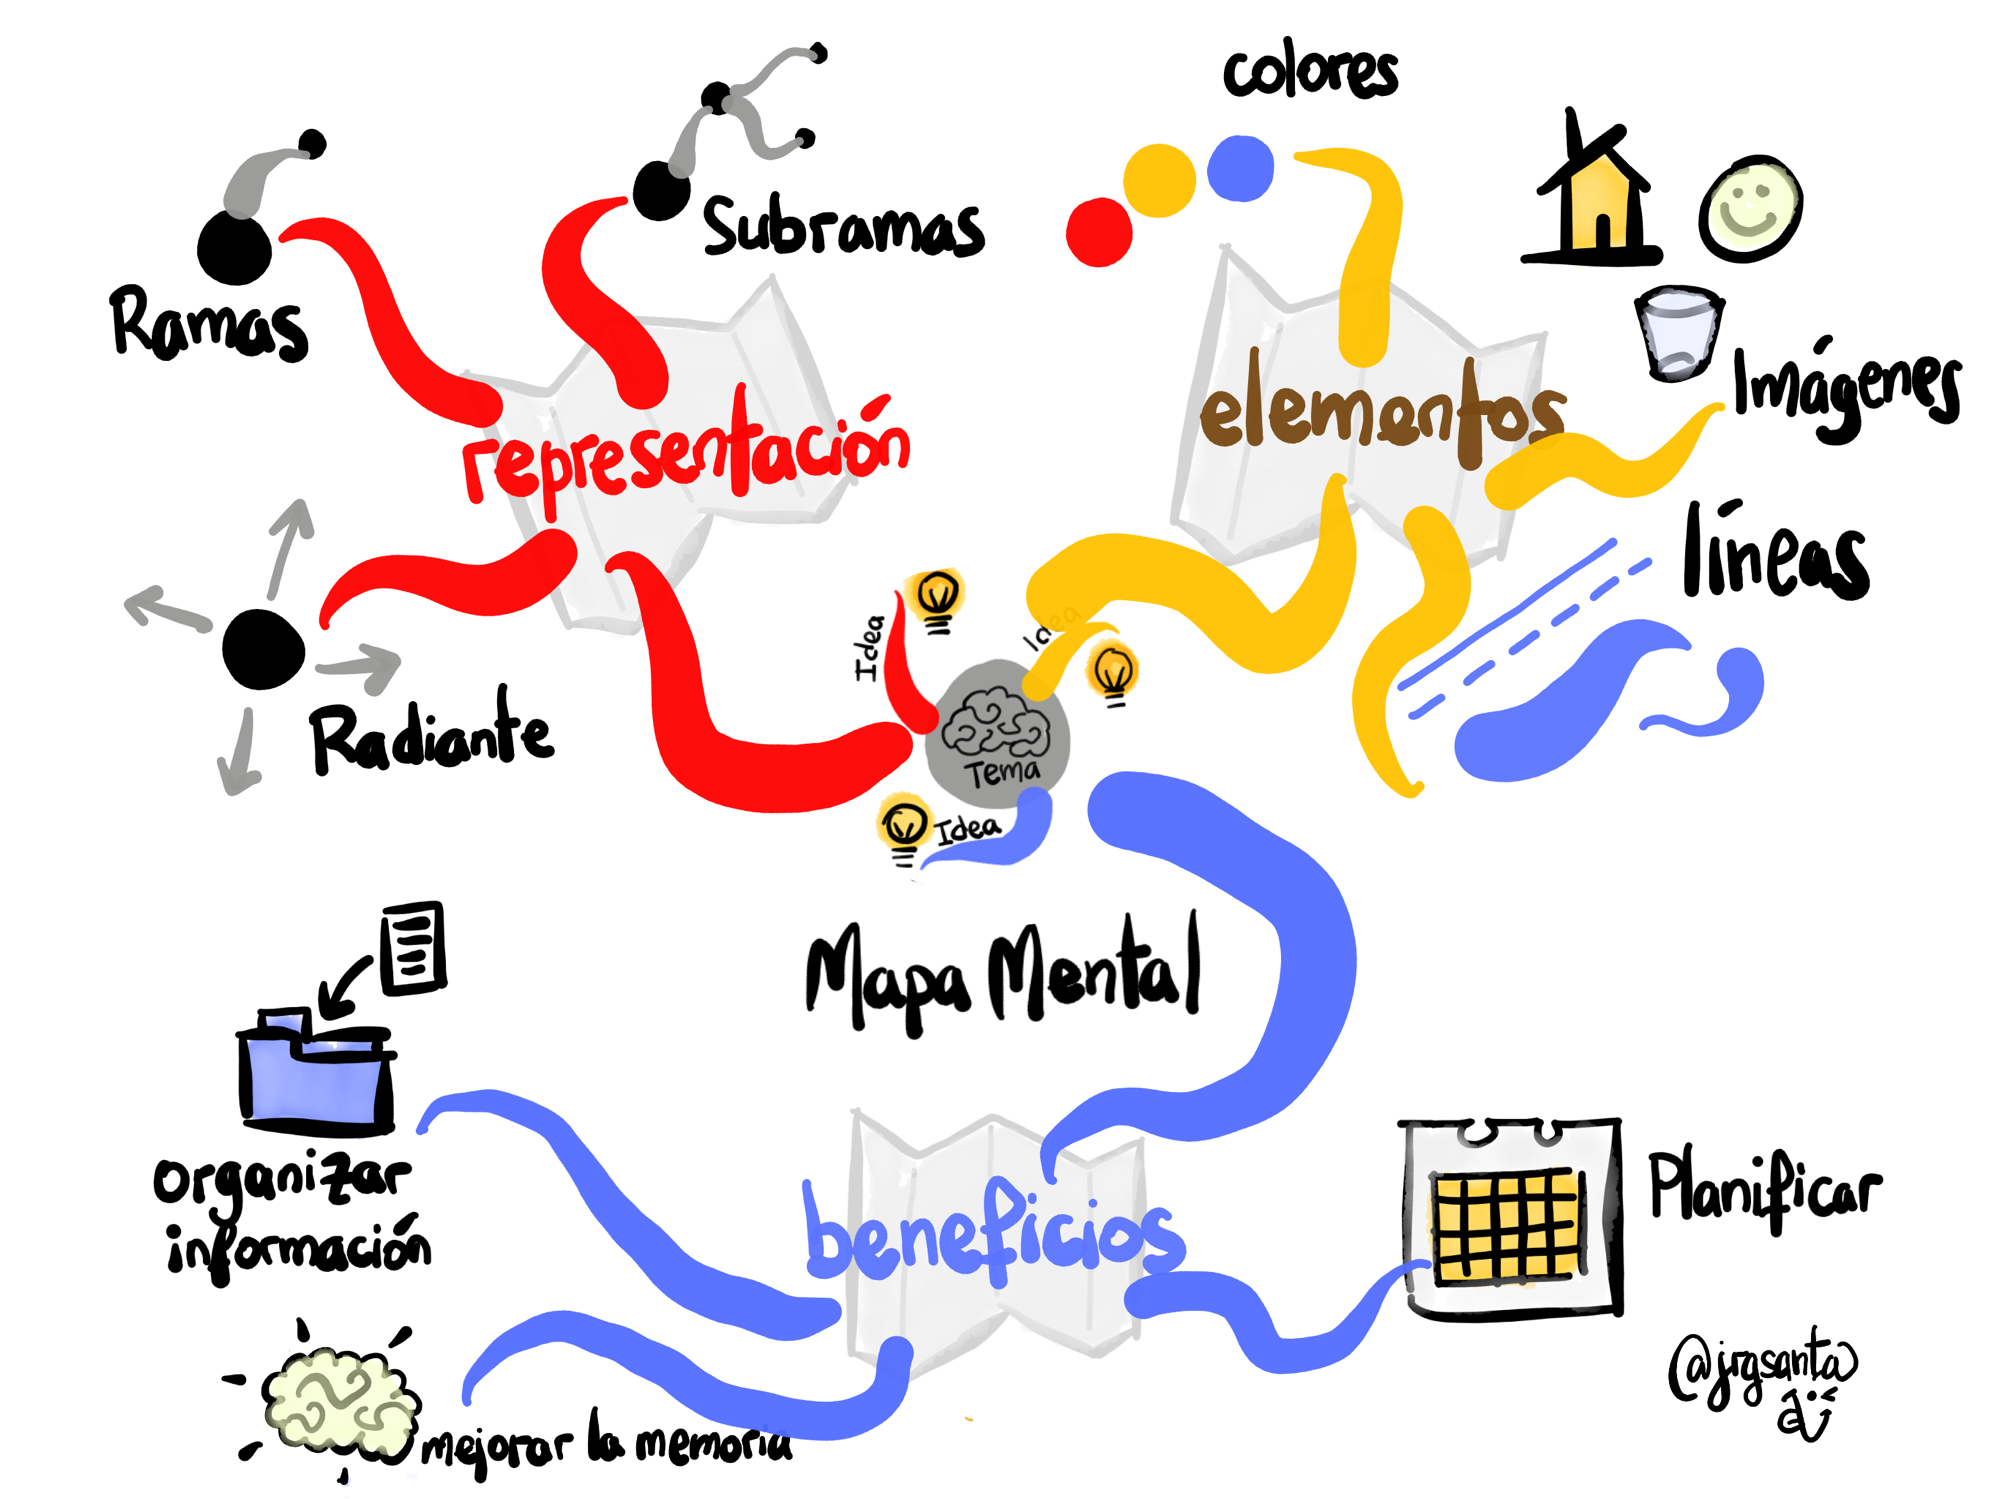 colores
Subramas
Ramas
Imágenes
elementos
representación
líneas
Idea
Idea
Radiante
Tema
Idea
Mapa Mental
organizar
información
Planificar
beneficios
@jrgsanta
mejorar la memoria